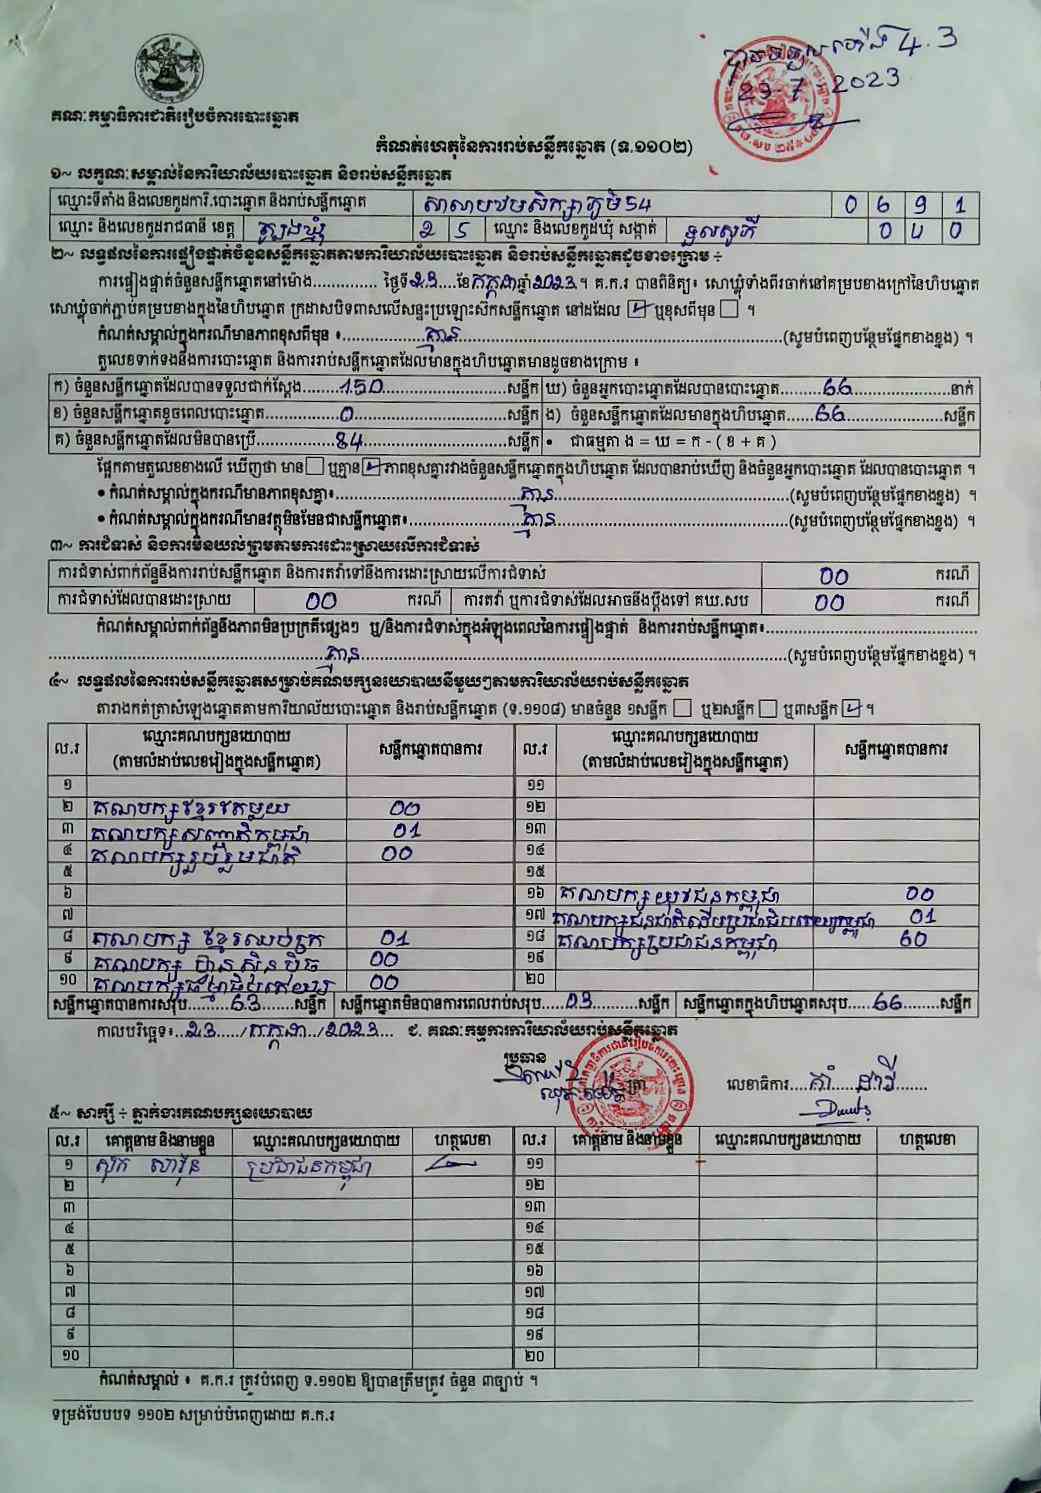 4.3
29 7 2023
គណៈកម្មាធិការជាតិរៀបចំការបោះឆ្នោត
កំណត់ហេតុនៃការរាប់សន្លឹកឆ្នោត (ទ.១១០២)
១~ លក្ខណៈសម្គាល់នៃការិយាល័យបោះឆ្នោត និងរាប់សន្លឹកឆ្នោត
ឈ្មោះទីតាំង និងលេខកូដការិ.បោះឆ្នោត និងរាប់សន្លឹកឆ្នោត សាលាបឋមសិក្សាភូមិ54 0 6 9 1
ឈ្មោះ និងលេខកូដរាជធានី ខេត្ត ត្បូងឃ្មុំ 2 5 ឈ្មោះ និងលេខកូដឃុំ សង្កាត់ ទួលសូភី 0 4 0
២~ លទ្ធផលនៃការផ្ទៀងផ្ទាត់ចំនួនសន្លឹកឆ្នោតតាមការិយាល័យបោះឆ្នោត និងរាប់សន្លឹកឆ្នោតដូចខាងក្រោម ÷
ការផ្ទៀងផ្ទាត់ចំនួនសន្លឹកឆ្នោតនៅម៉ោង.............. ថ្ងៃទី23....ខែកក្កដាឆ្នាំ2023.។ គ.ក.រ បានពិនិត្យ៖ សោឃ្លុំទាំងពីរចាក់នៅគម្របខាងក្រៅនៃហិបឆ្នោត
សោឃ្លុំចាក់ភ្ជាប់គម្របខាងក្នុងនៃហិបឆ្នោត ក្រដាសបិទពាសលើសន្ទះប្រឡោះស៊កសន្លឹកឆ្នោត នៅដដែល ☑ ឬខុសពីមុន ☐ ។
កំណត់សម្គាល់ក្នុងករណីមានភាពខុសពីមុន ៖ គ្មាន (សូមបំពេញបន្ថែមផ្នែកខាងខ្នង) ។
តួលេខទាក់ទងនឹងការបោះឆ្នោត និងការរាប់សន្លឹកឆ្នោតដែលមានក្នុងហិបឆ្នោតមានដូចខាងក្រោម ៖
ក) ចំនួនសន្លឹកឆ្នោតដែលបានទទួលជាក់ស្តែង........150........សន្លឹក ឃ) ចំនួនអ្នកបោះឆ្នោតដែលបានបោះឆ្នោត........66........នាក់
ខ) ចំនួនសន្លឹកឆ្នោតខូចពេលបោះឆ្នោត........0........សន្លឹក ង) ចំនួនសន្លឹកឆ្នោតដែលមានក្នុងហិបឆ្នោត......66........សន្លឹក
គ) ចំនួនសន្លឹកឆ្នោតដែលមិនបានប្រើ........84........សន្លឹក • ជាធម្មតា ង = ឃ = ក - ( ខ + គ )
ផ្អែកតាមតួលេខខាងលើ ឃើញថា មាន☐ ឬគ្មាន☑ ភាពខុសគ្នារវាងចំនួនសន្លឹកឆ្នោតក្នុងហិបឆ្នោត ដែលបានរាប់ឃើញ និងចំនួនអ្នកបោះឆ្នោត ដែលបានបោះឆ្នោត ។
• កំណត់សម្គាល់ក្នុងករណីមានភាពខុសគ្នា៖ គ្មាន (សូមបំពេញបន្ថែមផ្នែកខាងខ្នង) ។
• កំណត់សម្គាល់ក្នុងករណីមានវត្ថុមិនមែនជាសន្លឹកឆ្នោត៖ គ្មាន (សូមបំពេញបន្ថែមផ្នែកខាងខ្នង) ។
៣~ ការជំទាស់ និងការមិនយល់ព្រមតាមការដោះស្រាយលើការជំទាស់
ការជំទាស់ពាក់ព័ន្ធនឹងការរាប់សន្លឹកឆ្នោត និងការតវ៉ាទៅនឹងការដោះស្រាយលើការជំទាស់ 00 ករណី
ការជំទាស់ដែលបានដោះស្រាយ 00 ករណី ការតវ៉ា ឬការជំទាស់ដែលអាចនឹងប្តឹងទៅ គឃ.សប 00 ករណី
កំណត់សម្គាល់ពាក់ព័ន្ធនឹងភាពមិនប្រក្រតីផ្សេងៗ ឬ/និងការជំទាស់ក្នុងអំឡុងពេលនៃការផ្ទៀងផ្ទាត់ និងការរាប់សន្លឹកឆ្នោត៖
គ្មាន (សូមបំពេញបន្ថែមផ្នែកខាងខ្នង) ។
៤~ លទ្ធផលនៃការរាប់សន្លឹកឆ្នោតសម្រាប់គណបក្សនយោបាយនីមួយៗតាមការិយាល័យរាប់សន្លឹកឆ្នោត
តារាងកត់ត្រាសំឡេងឆ្នោតតាមការិយាល័យបោះឆ្នោត និងរាប់សន្លឹកឆ្នោត (ទ.១១០៨) មានចំនួន ១សន្លឹក ☐ ឬ២សន្លឹក ☐ ឬ៣សន្លឹក ☑ ។
ល.រ ឈ្មោះគណបក្សនយោបាយ (តាមលំដាប់លេខរៀងក្នុងសន្លឹកឆ្នោត) សន្លឹកឆ្នោតបានការ ល.រ ឈ្មោះគណបក្សនយោបាយ (តាមលំដាប់លេខរៀងក្នុងសន្លឹកឆ្នោត) សន្លឹកឆ្នោតបានការ
១ ១១
២ គណបក្សខ្មែរតែមួយ 00 ១២
៣ គណបក្សសញ្ជាតិកម្ពុជា 01 ១៣
៤ គណបក្សរួបរួមជាតិ 00 ១៤
៥ ១៥
៦ ១៦ គណបក្សយុវជនកម្ពុជា 00
៧ ១៧ គណបក្សជនជាតិដើមប្រជាធិបតេយ្យកម្ពុជា 01
៨ គណបក្ស ខ្មែរឈប់ក្រ 01 ១៨ គណបក្សប្រជាជនកម្ពុជា 60
៩ គណបក្ស ហ្វ៊ុនស៊ិនប៉ិច 00 ១៩
១០ គណបក្សធម្មាធិបតេយ្យ 00 ២០
សន្លឹកឆ្នោតបានការសរុប........63........សន្លឹក សន្លឹកឆ្នោតមិនបានការពេលរាប់សរុប.....03........សន្លឹក សន្លឹកឆ្នោតក្នុងហិបឆ្នោតសរុប.....66........សន្លឹក
កាលបរិច្ឆេទ៖..23..../កក្កដា../2023.... ជ. គណៈកម្មការការិយាល័យរាប់សន្លឹកឆ្នោត
ប្រធាន
ត្រា លេខាធិការ.... គាំ ដាវី
៥~ សាក្សី ÷ ភ្នាក់ងារគណបក្សនយោបាយ
ល.រ គោត្តនាម និងនាមខ្លួន ឈ្មោះគណបក្សនយោបាយ ហត្ថលេខា ល.រ គោត្តនាម និងនាមខ្លួន ឈ្មោះគណបក្សនយោបាយ ហត្ថលេខា
១ ប្រជាជនកម្ពុជា ១១
២ ១២
៣ ១៣
៤ ១៤
៥ ១៥
៦ ១៦
៧ ១៧
៨ ១៨
៩ ១៩
១០ ២០
កំណត់សម្គាល់ ៖ គ.ក.រ ត្រូវបំពេញ ទ.១១០២ ឱ្យបានត្រឹមត្រូវ ចំនួន ៣ច្បាប់ ។
ទម្រង់បែបបទ ១១០២ សម្រាប់បំពេញដោយ គ.ក.រ